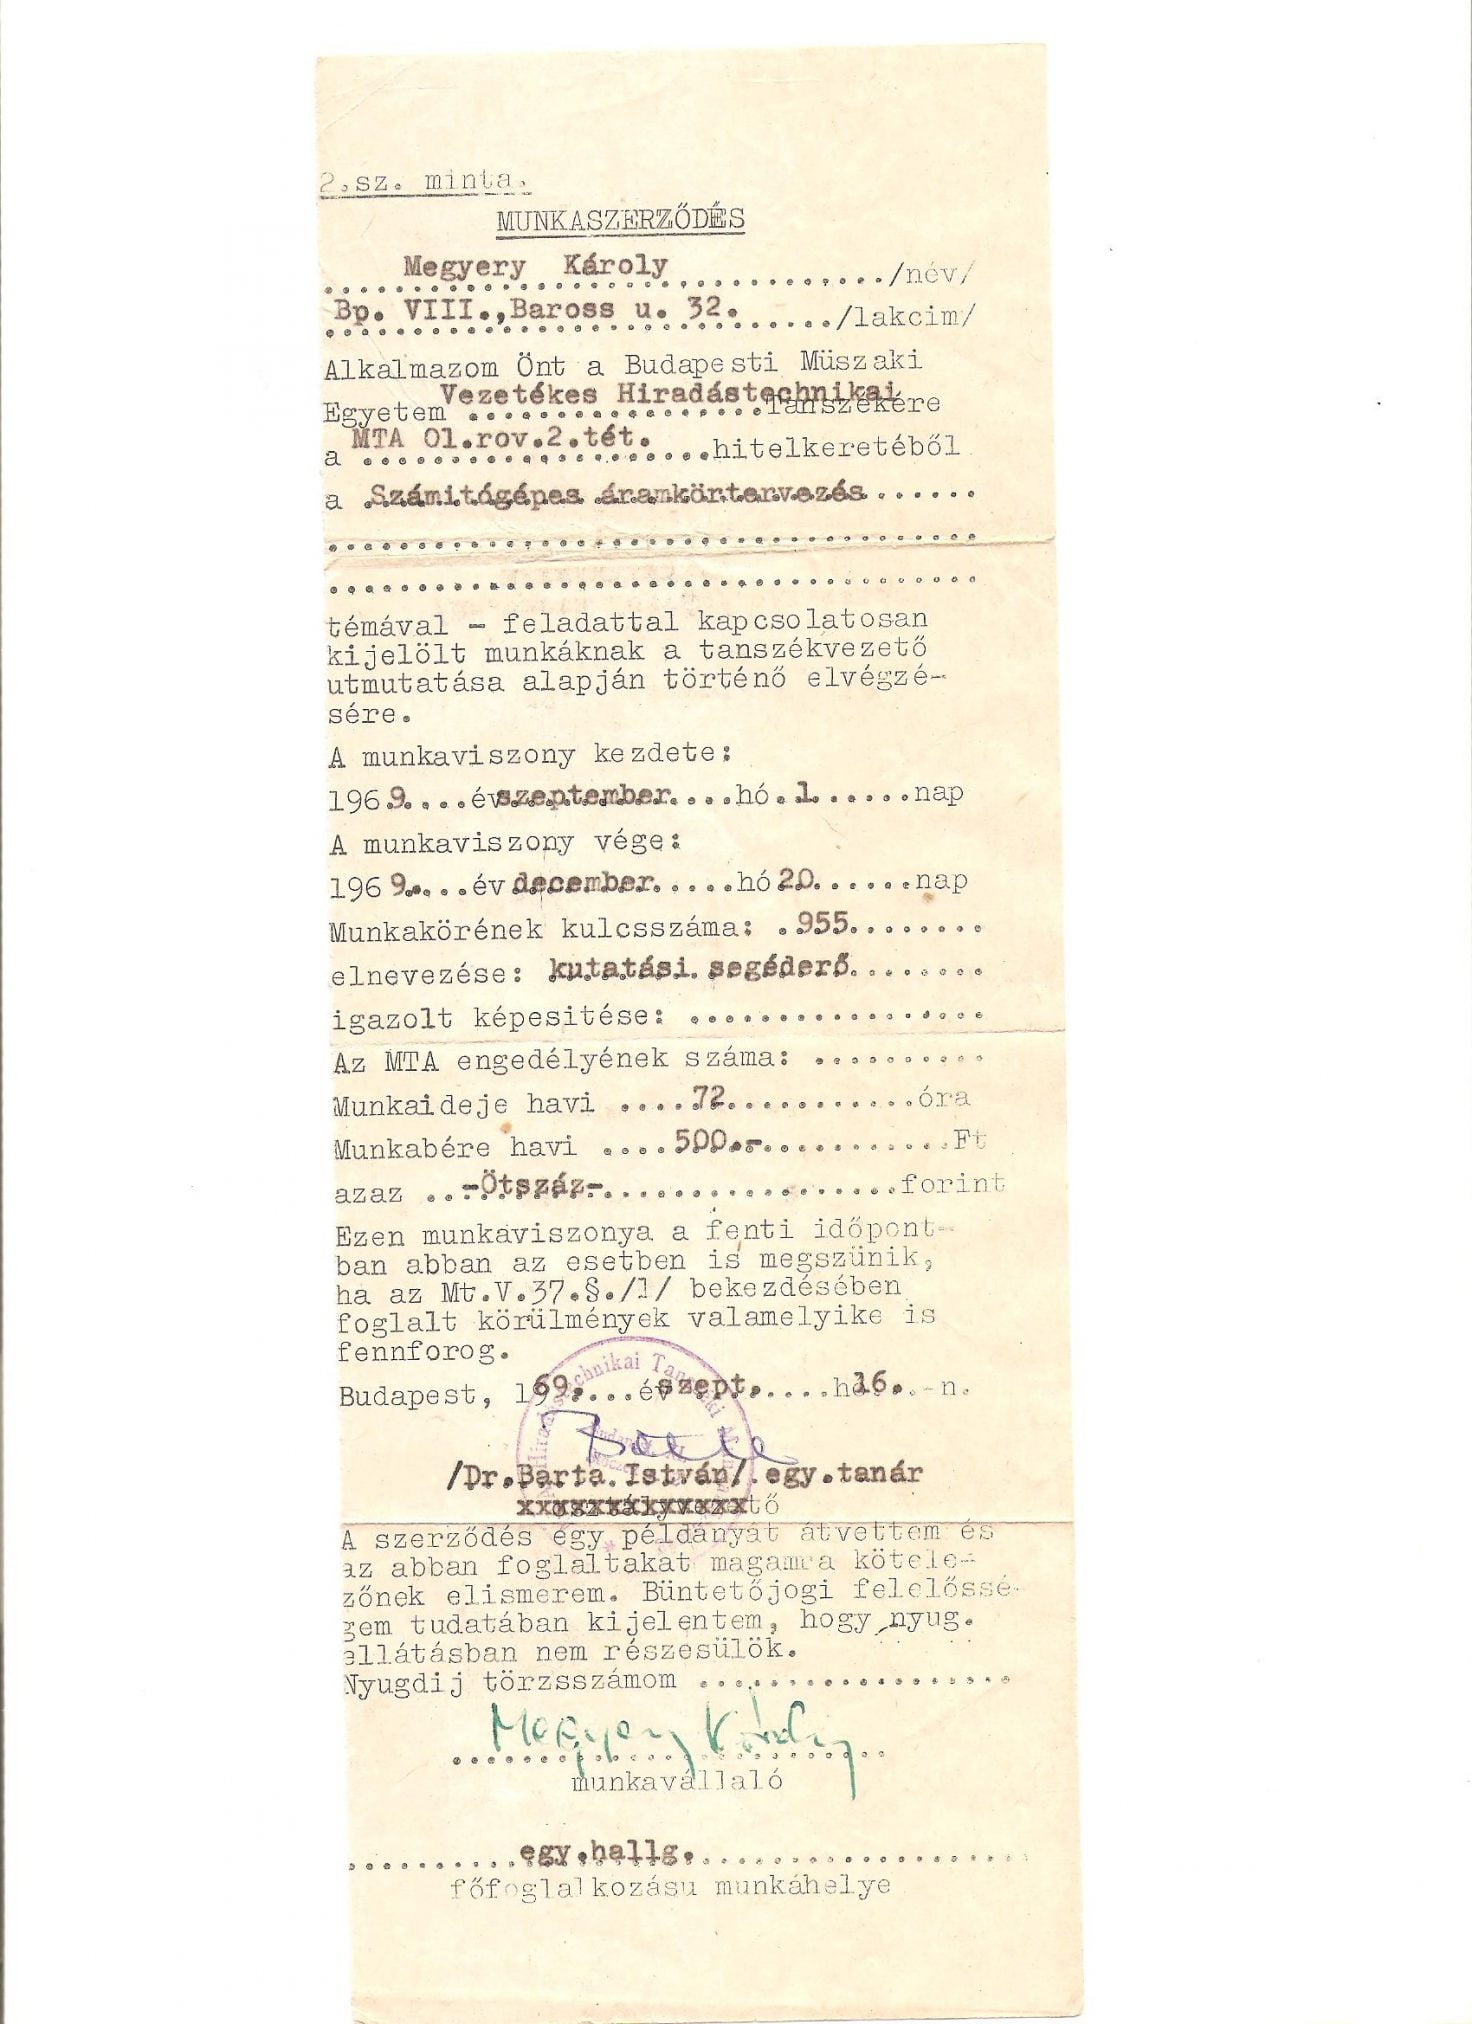 2.sz. minta.
MUNKASZERZŐDÉS
Megyery Károly ............/név/
Bp. VIII.,Baross u. 32. ....../lakcim/
Alkalmazom Önt a Budapesti Müszaki
Egyetem Vezetékes Hiradástechnikai Tanszékére
a MTA 01.rov.2.tét. ....hitelkeretéből
a Számitógépes áramkörtervezés.......
.....................................
.....................................
témával - feladattal kapcsolatosan
kijelölt munkáknak a tanszékvezető
utmutatása alapján történő elvégzé-
sére.
A munkaviszony kezdete:
1969....év szeptember....hó.1......nap
A munkaviszony vége:
1969....év december.....hó 20......nap
Munkakörének kulcsszáma: .955........
elnevezése: kutatási segéderő........
igazolt képesitése: .................
Az MTA engedélyének száma: ..........
Munkaideje havi ....72...........óra
Munkabére havi ....500.-...........Ft
azaz ..-Ötszáz-.................forint
Ezen munkaviszonya a fenti időpont-
ban abban az esetben is megszünik,
ha az Mt.V.37.§./1/ bekezdésében
foglalt körülmények valamelyike is
fennforog.
Budapest, 1969....év szept.....hó 16..-n.
/Dr.Barta István/ egy.tanár
osztályvezető
A szerződés egy példányát átvettem és
az abban foglaltakat magamra kötele-
zőnek elismerem. Büntetőjogi felelőssé-
gem tudatában kijelentem, hogy nyug.
ellátásban nem részesülök.
Nyugdij törzsszámom ..................
Megyery Károly
munkavállaló
..........egy.hallg....................
főfoglalkozásu munkáhelye